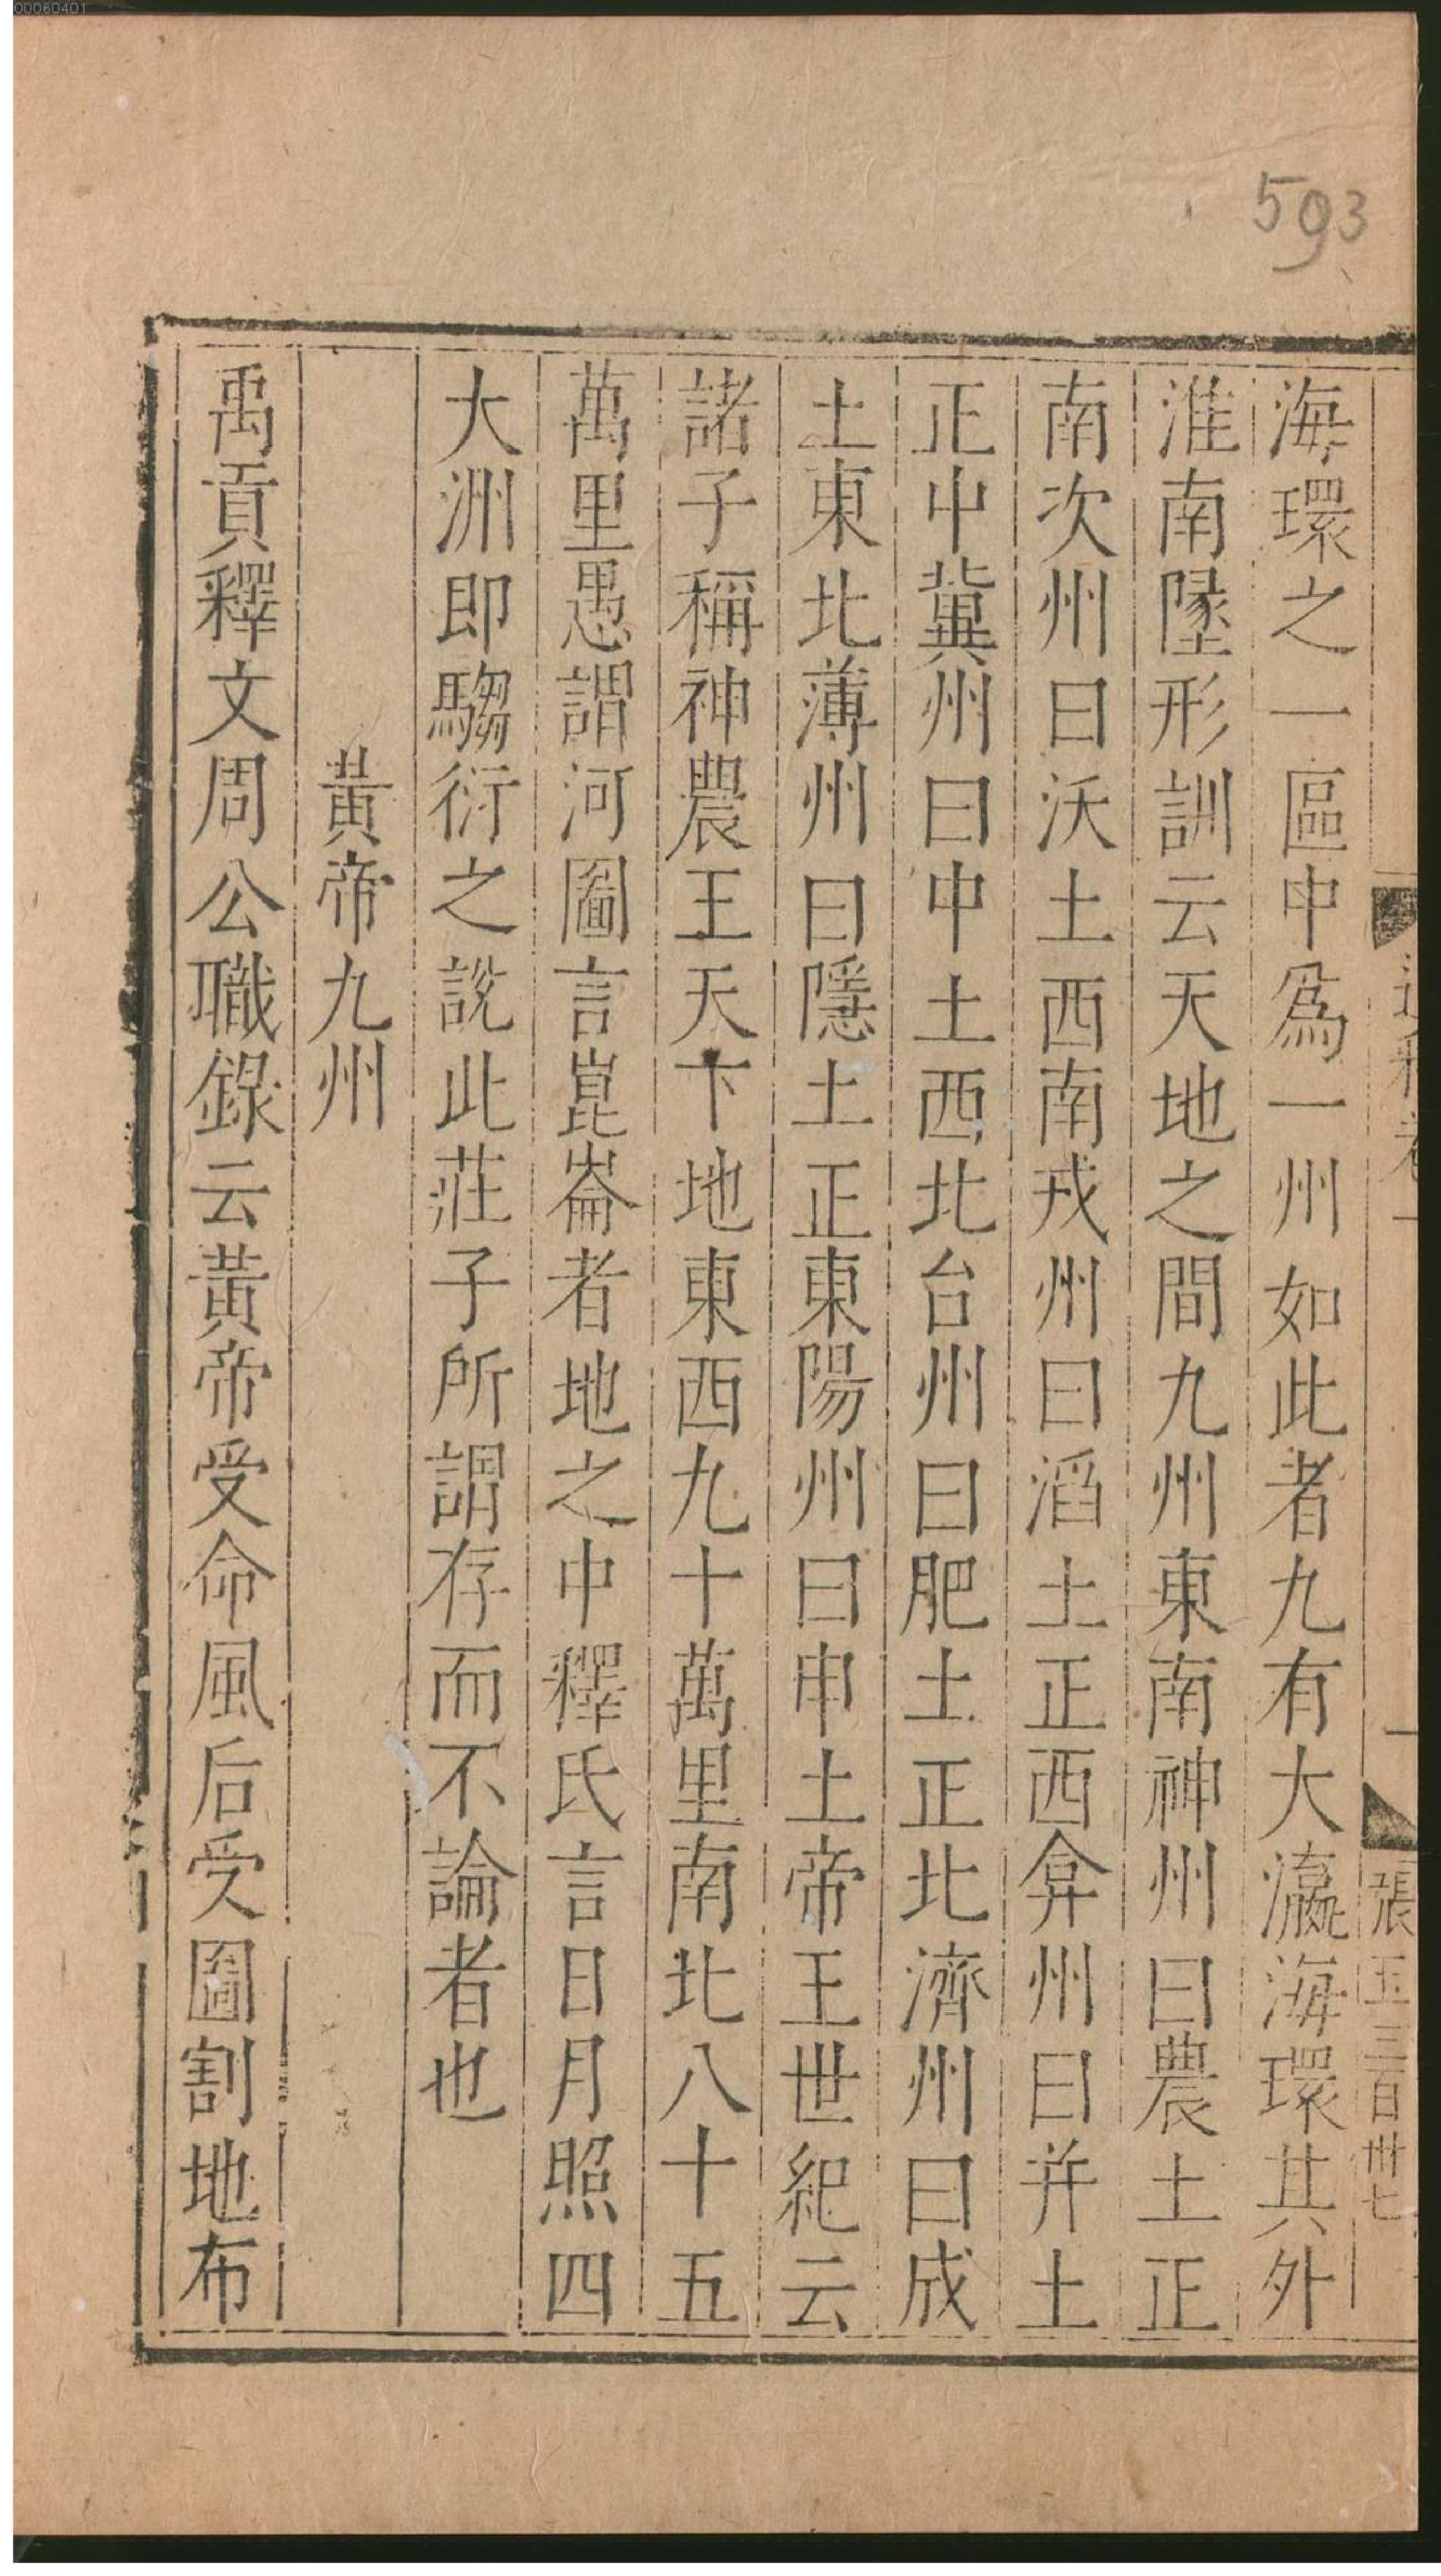 00060401
593
海環之一區中爲一州如此者九有大瀛海環其外
淮南墬形訓云天地之間九州東南神州曰農土正
南次州曰沃土西南戎州曰滔土正西弇州曰并土
正中冀州曰中土西北台州曰肥土正北濟州曰成
土東北薄州曰隱土正東陽州曰申土帝王世紀云
諸子稱神農王天下地東西九十萬里南北八十五
萬里愚謂河圖言崑崙者地之中釋氏言日月照四
大洲即騶衍之説此莊子所謂存而不論者也
黃帝九州
禹貢釋文周公職錄云黃帝受命風后受圖割地布
張玉三百卅七